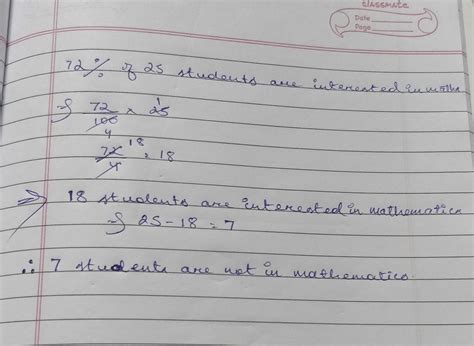 classmate
Date
Page
72% of 25 students are interested in maths
⇒ 72/100 × 25 1
4
72/4 18 = 18
⇒ 18 students are interested in mathematics
⇒ 25 - 18 = 7
∴ 7 students are not in mathematics.